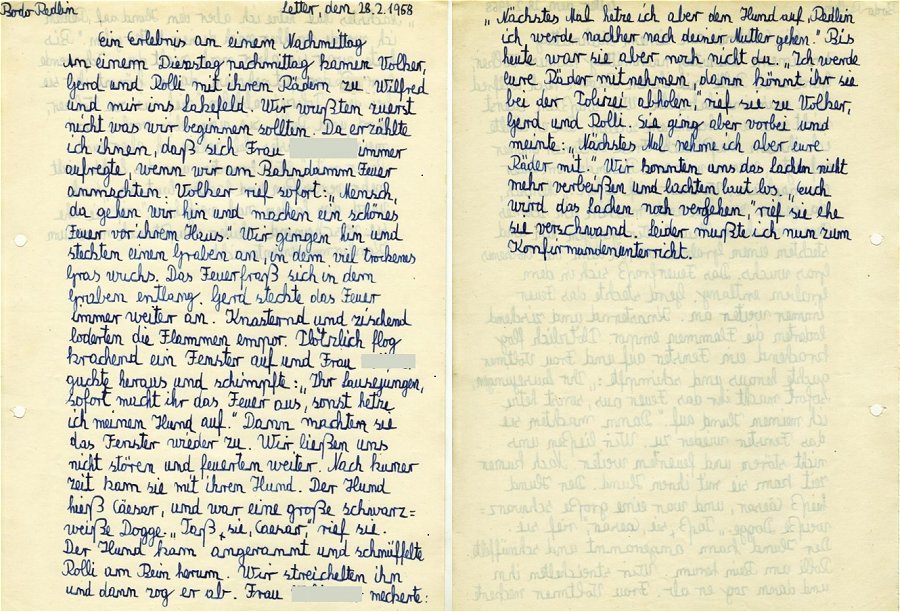 Bodo Redlin Letter, den 28.2.1968
Ein Erlebnis an einem Nachmittag
An einem Dienstag nachmittag kamen Volker,
Gerd und Rolli mit ihren Rädern zu Wilfred
und mir ins Lakefeld. Wir wußten zuerst
nicht was wir beginnen sollten. Da erzählte
ich ihnen, daß sich Frau immer
aufregte, wenn wir am Bahndamm Feuer
anmachten. Volker rief sofort: „Mensch,
da gehen wir hin und machen ein schönes
Feuer vor ihrem Haus." Wir gingen hin und
steckten einen Graben an, in dem viel trockenes
Gras wuchs. Das Feuer fraß sich in dem
Graben entlang. Gerd steckte das Feuer
immer weiter an. Knasternd und zischend
loderten die Flammen empor. Plötzlich flog
krachend ein Fenster auf und Frau
guckte heraus und schimpfte: „Ihr Lausejungen,
sofort macht ihr das Feuer aus, sonst hetze
ich meinen Hund auf." Dann machten sie
das Fenster wieder zu. Wir ließen uns
nicht stören und feuerten weiter. Nach kurzer
Zeit kam sie mit ihren Hund. Der Hund
hieß Cäesar, und war eine große schwarz=
weiße Dogge. „Faß, sie, Caesar," rief sie.
Der Hund kam angerammt und schnüffelte
Rolli am Bein herum. Wir streichelten ihn
und dann zog er ab. Frau meckerte:
„Nächstes Mal hetze ich aber den Hund auf, Redlin
ich werde nachher nach deiner Mutter gehen." Bis
heute war sie aber noch nicht da. „Ich werde
eure Räder mitnehmen, dann könnt ihr sie
bei der Polizei abholen, rief sie zu Volker,
Gerd und Rolli. Sie ging aber vorbei und
meinte: „Nächstes Mal nehme ich aber eure
Räder mit." Wir konnten uns das Lachen nicht
mehr verbeißen und lachten laut los. „Euch
wird das Lachen noch vergehen," rief sie ehe
sie verschwand. Leider mußte ich nun zum
Konfirmandenunterricht.